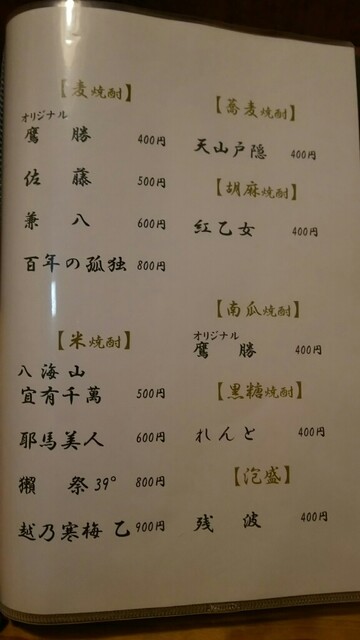 【麦焼酎】
オリジナル
鷹勝 400円
佐藤 500円
兼八 600円
百年の孤独 800円
【米焼酎】
八海山
宜有千萬 500円
耶馬美人 600円
獺祭39° 800円
越乃寒梅 乙 900円
【蕎麦焼酎】
天山戸隠 400円
【胡麻焼酎】
紅乙女 400円
【南瓜焼酎】
オリジナル
鷹勝 400円
【黒糖焼酎】
れんと 400円
【泡盛】
残波 400円